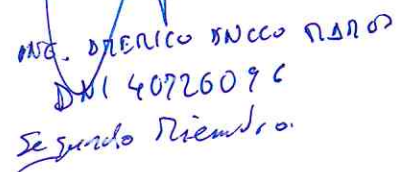 ING. AMERICO ANCCO MAMANI
DNI 40726096
Segundo Miembro.